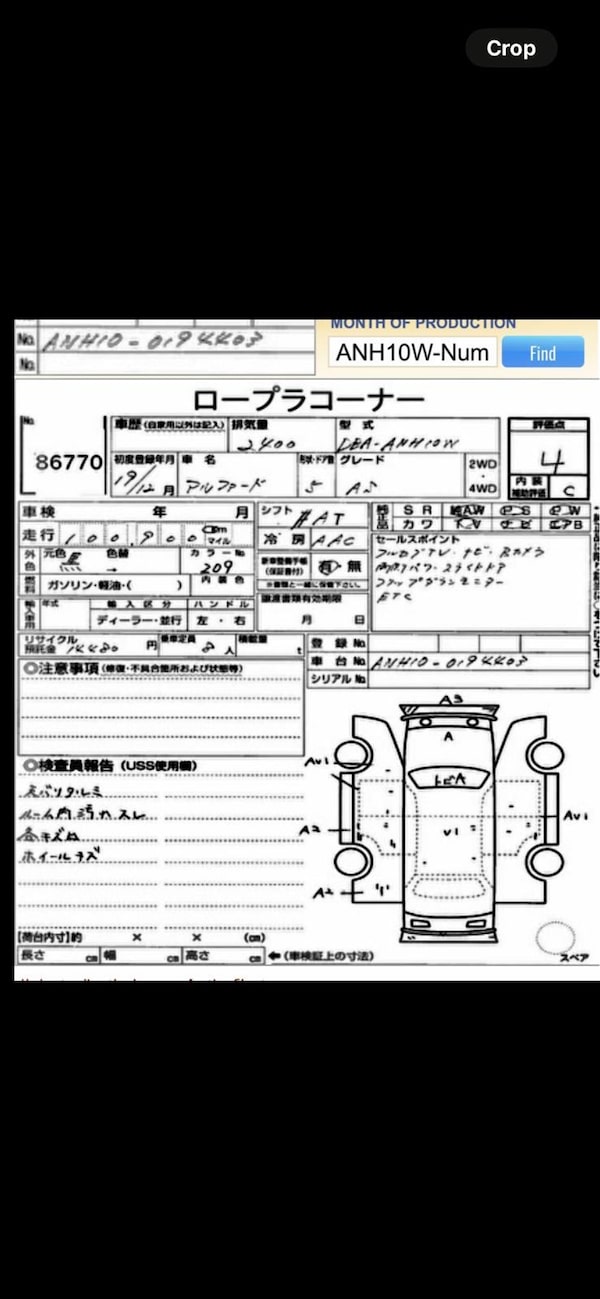 Crop
MONTH OF PRODUCTION
No. ANH10-0194403
No.
ANH10W-Num
Find
ロープラコーナー
No.
86770
車歴(自家用以外は記入)
排気量
2400
型式
DBA-ANH10W
評価点
4
初度登録年月
19/12月
車名
アルファード
形状・ドア数
5
グレード
AS
2WD
・
4WD
内装
補助評価
C
車検 年 月
シフト
AT
純正品
SR AW PS PW
カワ TV ナビ エアB
走行 100,900 km
マイル
冷房 AAC
セールスポイント
外色
元色 黒
色替 →
カラーNo.
209
新車整備手帳
(保証書付)
有・無
フルセグTV・ナビ・Bカメラ
両側パワースライドドア
フリップダウンモニター
ETC
燃料
ガソリン・軽油・( )
内装色
輸入車用
年式
輸入区分
ハンドル
ディーラー・並行
左・右
譲渡書類有効期限
月 日
リサイクル
預託金 14480円
乗車定員 8人
積載量 t
登録No.
車台No. ANH10-0194403
シリアルNo.
◎注意事項(修復・不具合箇所および状態等)
◎検査員報告(USS使用欄)
ルーム内汚れスレ
各キズA
ホイールキズ
A3
A
AU1
トビA
A2
U1
AU1
A2
【荷台内寸】約 × × (cm)
長さ cm 幅 cm 高さ cm ←(車検証上の寸法)
スペア